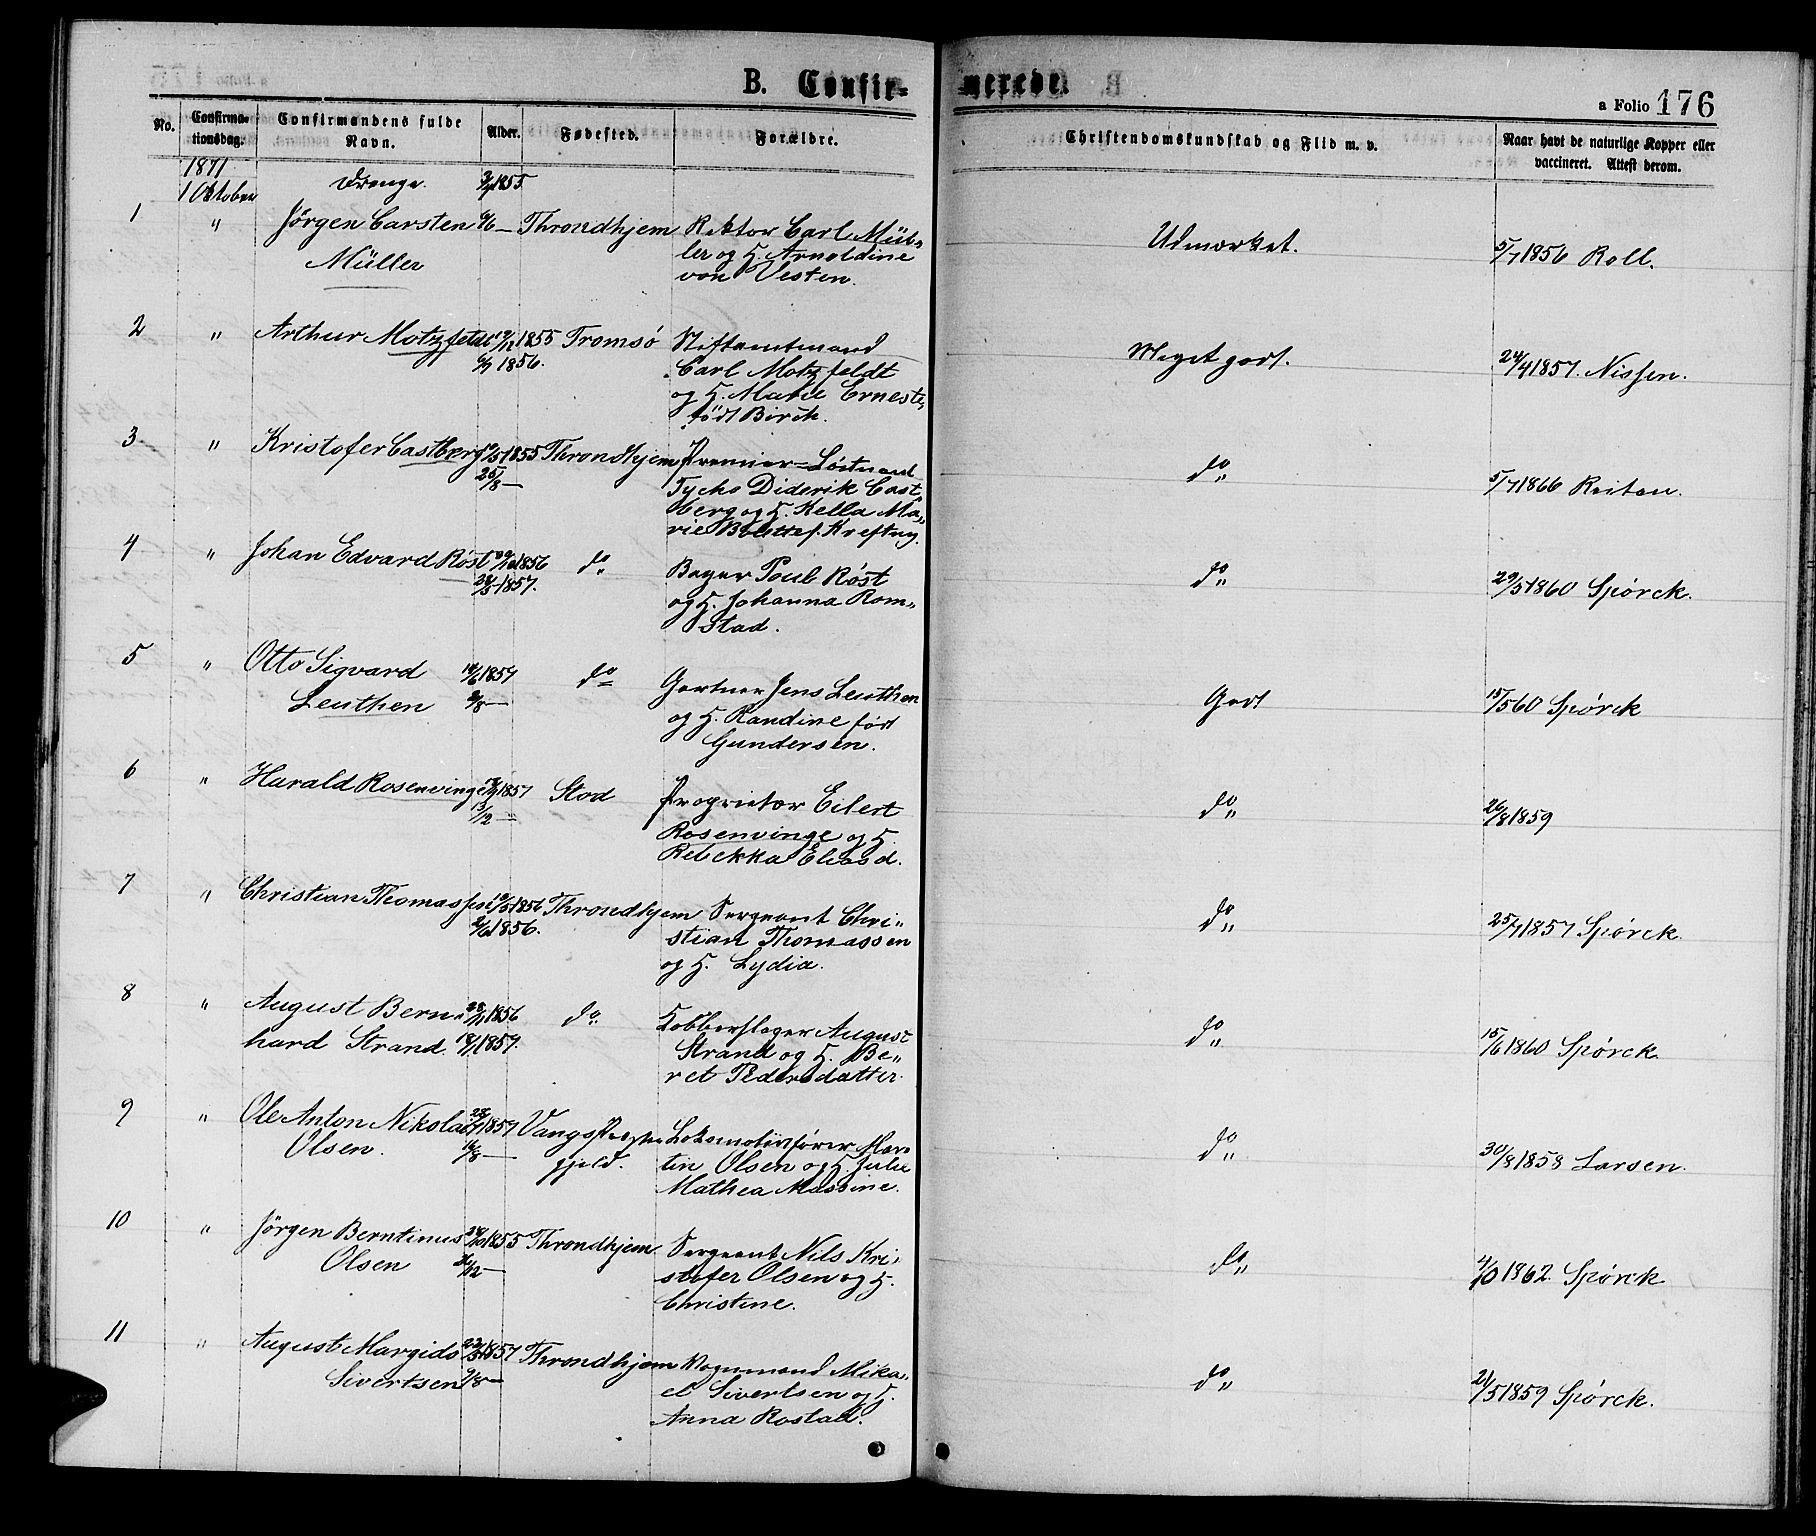 B. Confir- merede.
a Folio 176
No.
Confirma-
tionsdag.
Confirmandens fulde
Navn.
Alder.
Fødested.
Forældre.
Christendomskundskab og Flid m. v.
Naar havt de naturlige Kopper eller
vaccineret. Attest derom.
1871
1 Oktober
Drenge.
1855
1 " Jörgen Carsten Throndhjem Rektor Carl Mül-
Müller ler og H. Arnoldine
von Vesten.
Udmærket. 5/7 1856 Roll.
2 " Arthur Motzfeldt 19/12 1855 Tromsö Stiftamtmand
6/7 1856. Carl Motzfeldt
og H. Marie Erneste,
født Birch.
Meget godt. 24/4 1857. Nissen.
3 " Kristofer Castberg 1855 Throndhjem Premier-Løitnant
25/8 — Tycho Diderik Cast
berg og H. Kella Ma-
rie Bolette f. Krefting.
do 5/7 1866 Reiten.
4 " Johan Edvard Röst 1856 do Bager Poul Röst
1857. og H. Johanna Rom-
stad.
do 29/5 1860 Spörck.
5 " Otto Sigvard 14/6 1857 do Gartner Jens Leuthen
Leuthen 9/8 — og H. Randine født
Gundersen.
Godt 15/5 60 Spörck
6 " Harald Rosenvinge 1857 Stod Proprietær Eilert
13/2 " Rosenvinge og H.
Rebekka Eliasd.
do 26/8 1859
7 " Christian Thomassen 1856 Throndhjem Sergeant Chri-
1856. stian Thomassen
og H. Lydia.
do 25/7 1857 Spörck.
8 " August Bern- 1856 do Kobberslager August
hard Strand. 1857. Strand og H. Be-
ret Pedersdatter.
do 15/6 1860 Spörck.
9 " Ole Anton Nikolai 1857 Vangs Præste
Olsen. 16/8 — gjeld.
Lokomotivfører Mar-
tin Olsen og H. Julie
Mathea Massine.
do 30/8 1858 Larsen.
10 " Jörgen Berntinus 1855 Throndhjem Sergeant Nils Kri-
Olsen stofer Olsen og H.
Christine.
do 1862. Spörck
11 " August Margido 1857 Throndhjem Vognmand Mika-
Sivertsen 9/8 — el Sivertsen og H.
Anna Rostad.
do 21/5 1859 Spörck.